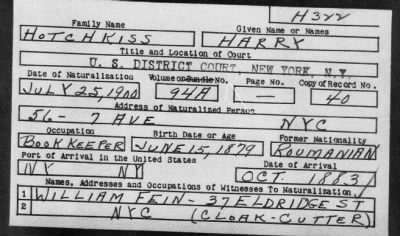 H322
Family Name Given Name or Names
HOTCHKISS HARRY
Title and Location of Court
U. S. DISTRICT COURT, NEW YORK, N.Y.
Date of Naturalization Volume or Bundle No. Page No. Copy of Record No.
JULY 25, 1900 94A — 40
Address of Naturalized Person
56 - 7 AVE NYC
Occupation Birth Date or Age Former Nationality
BOOKKEEPER JUNE 15, 1879 ROUMANIAN
Port of Arrival in the United States Date of Arrival
NY NY OCT. 1883
Names, Addresses and Occupations of Witnesses To Naturalization
1 WILLIAM FEIN - 37 ELDRIDGE ST
2 NYC (CLOAK-CUTTER)